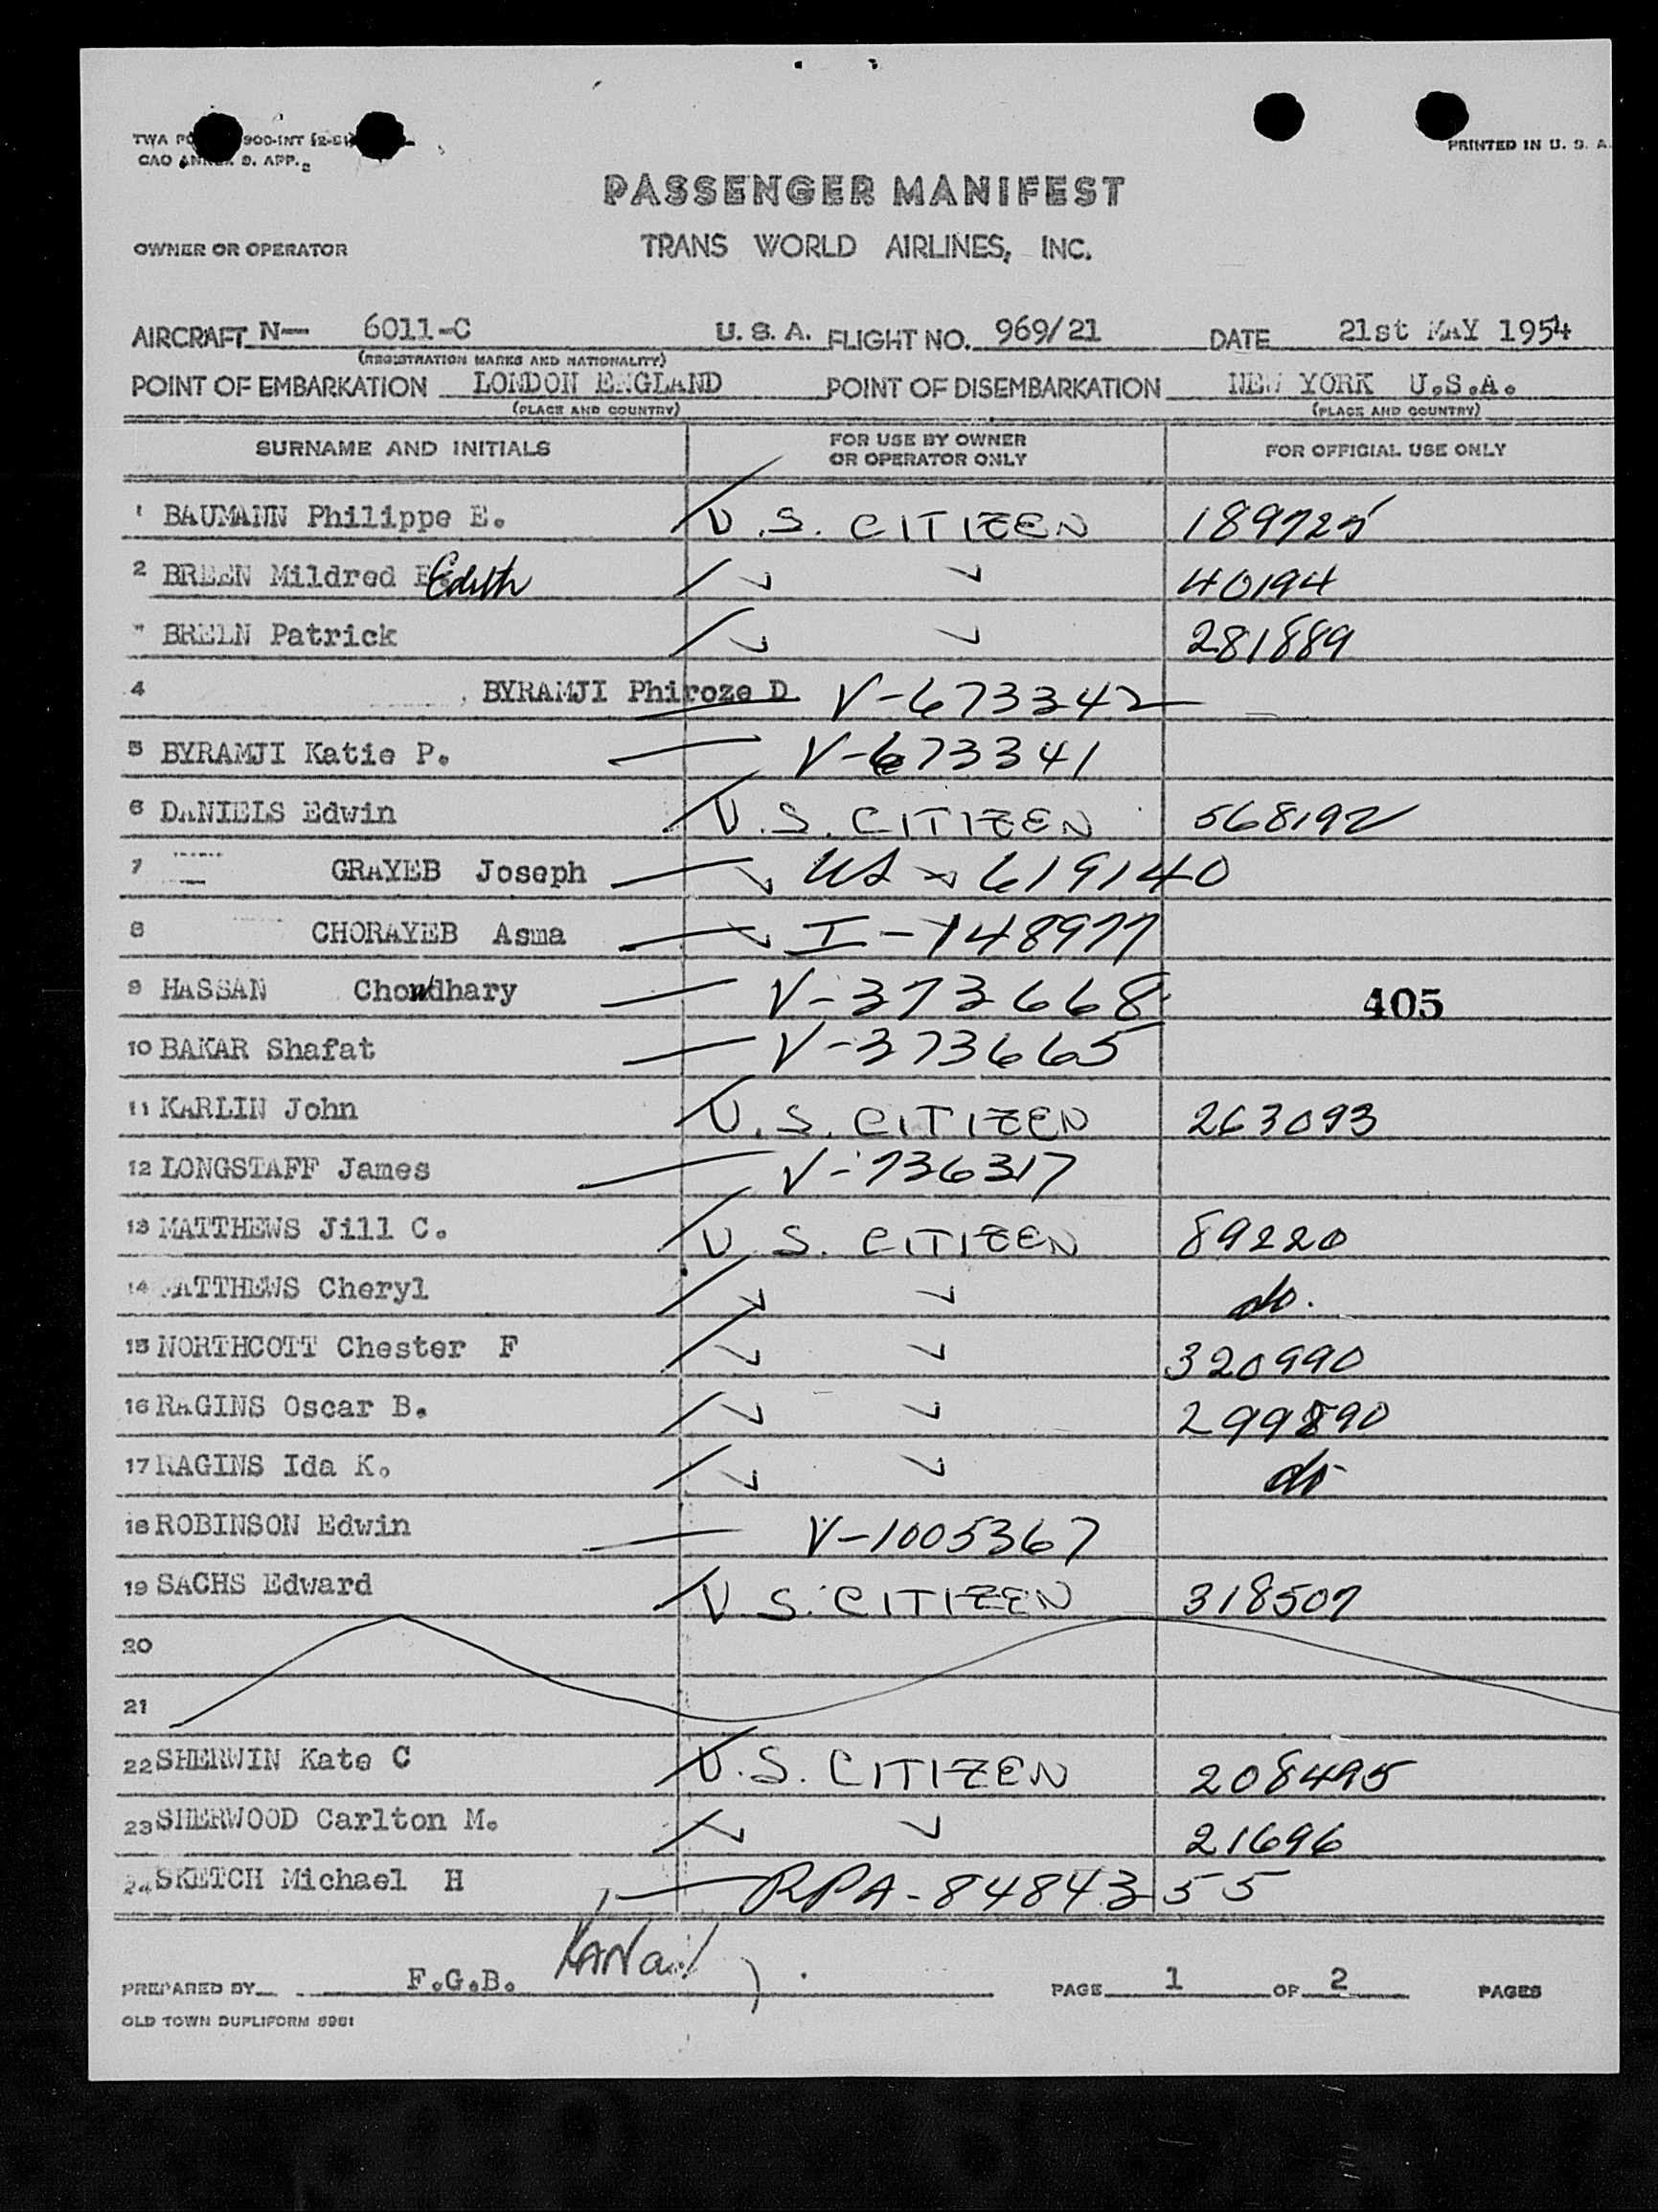 PRINTED IN U. S. A.
PASSENGER MANIFEST
OWNER OR OPERATOR TRANS WORLD AIRLINES, INC.
AIRCRAFT N— 6011-C U. S. A. FLIGHT NO. 969/21 DATE 21st MAY 1954
(REGISTRATION MARKS AND NATIONALITY)
POINT OF EMBARKATION LONDON ENGLAND POINT OF DISEMBARKATION NEW YORK U.S.A.
(PLACE AND COUNTRY) (PLACE AND COUNTRY)
SURNAME AND INITIALS FOR USE BY OWNER OR OPERATOR ONLY FOR OFFICIAL USE ONLY
1 BAUMANN Philippe E. U.S. CITIZEN 189725
2 BREEN Mildred Edith ✓ ✓ 40194
BREEN Patrick ✓ ✓ 281889
4 BYRAMJI Phiroze D V-673342
5 BYRAMJI Katie P. V-673341
6 DANIELS Edwin U.S. CITIZEN 568192
7 GRAYEB Joseph 619140
8 CHORAYEB Asma I-148977
9 HASSAN Chowdhary V-373668 405
10 BAKAR Shafat V-373665
11 KARLIN John U.S. CITIZEN 263093
12 LONGSTAFF James V-736317
13 MATTHEWS Jill C. U.S. CITIZEN 89220
14 MATTHEWS Cheryl ✓ ✓ do.
15 NORTHCOTT Chester F ✓ ✓ 320990
16 RAGINS Oscar B. ✓ ✓ 299890
17 RAGINS Ida K. ✓ ✓ do
18 ROBINSON Edwin V-1005367
19 SACHS Edward U.S. CITIZEN 318507
20
21
22 SHERWIN Kate C U.S. CITIZEN 208495
23 SHERWOOD Carlton M. ✓ ✓ 21696
24 SKETCH Michael H RPA-8484355
PREPARED BY F.G.B. PAGE 1 OF 2 PAGES
OLD TOWN DUPLIFORM 8981